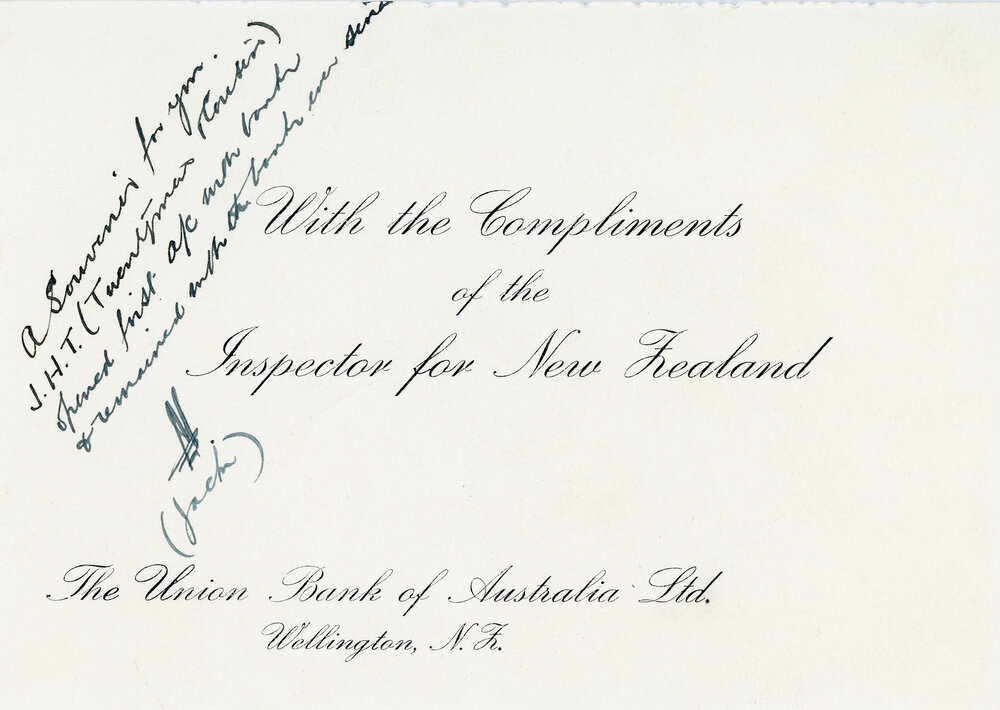 A Souvenir for you.
J.H.T. (Twentyman Cousin)
opened first a/c with bank
& remained with the bank ever since
(Jack)
With the Compliments
of the
Inspector for New Zealand
The Union Bank of Australia Ltd.
Wellington, N.Z.